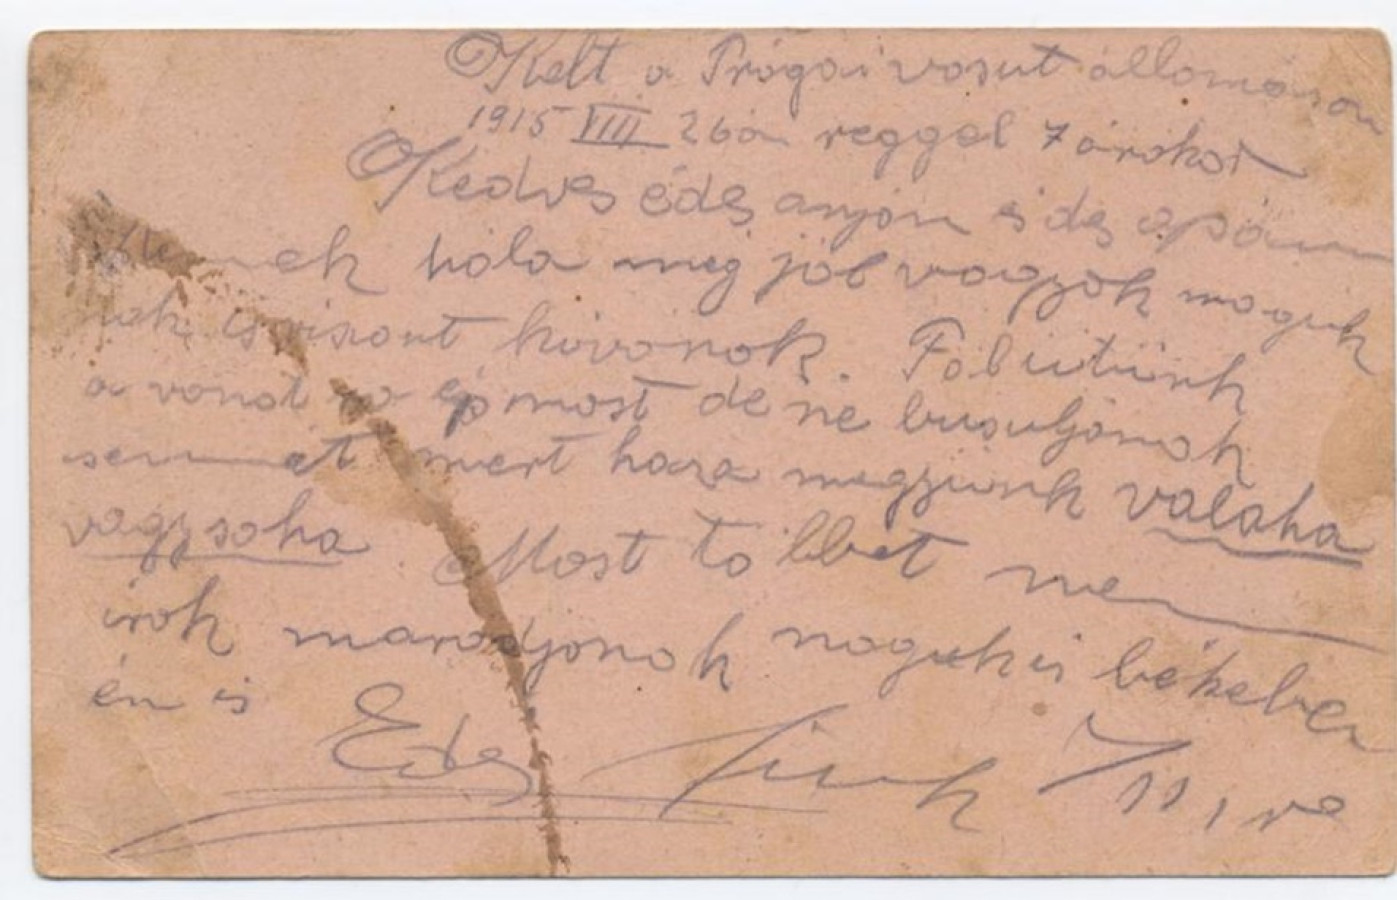 Kelt a Prágai vasut állomáson
1915 VIII 26án reggel 7 órakor
Kedves édes anyám édes apám
hála még jól vagyok maguk
nak is viszont kivánok. Fölültünk
a vonat ra ép most de ne busuljanak
semmit mert haza megyünk valaha
vagy soha Most többet nem
irok maradjonak magukis békeben
én is
Edes fiuk